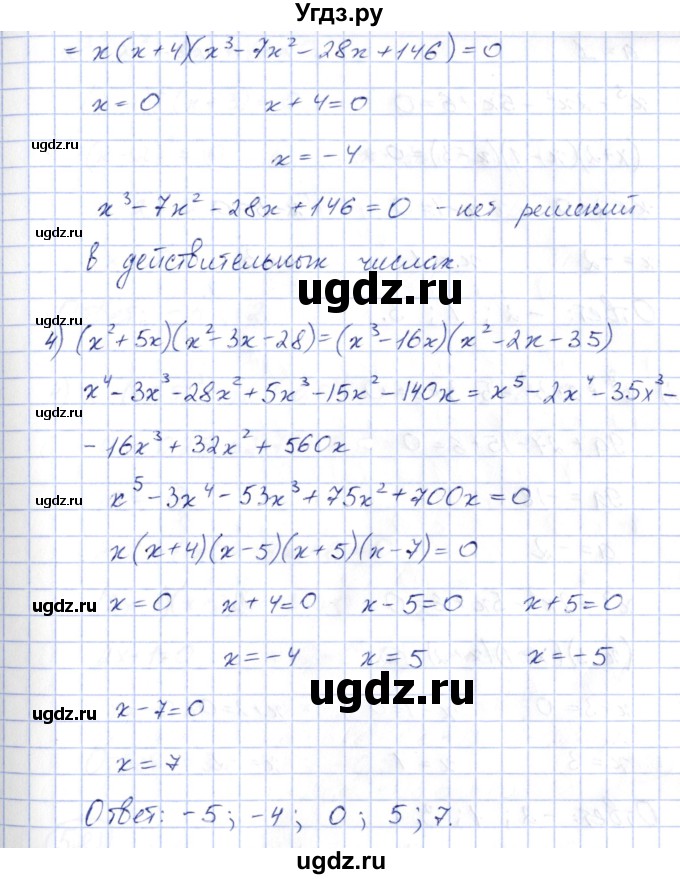 Угдз.ру
= x(x+4)(x³-7x²-28x+146)=0
x=0 x+4=0
ugdz.ru
x=-4
x³-7x²-28x+146=0 - нет решений
ugdz.ru
в действительных числах.
ugdz.ru
4) (x²+5x)(x²-3x-28)=(x³-16x)(x²-2x-35)
ugdz.ru
x⁴-3x³-28x²+5x³-15x²-140x=x⁵-2x⁴-35x³-
-16x³+32x²+560x
ugdz.ru
x⁵-3x⁴-53x³+75x²+700x=0
x(x+4)(x-5)(x+5)(x-7)=0
ugdz.ru
x=0 x+4=0 x-5=0 x+5=0
x=-4 x=5 x=-5
ugdz.ru
ugdz.ru
x-7=0
x=7
Ответ: -5; -4; 0; 5; 7.
ugdz.ru